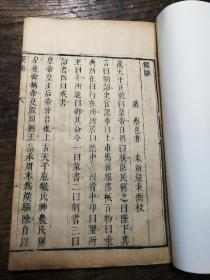 獨斷
漢 蔡邕著 
漢天子正號曰皇帝自稱曰朕臣民稱之曰陛下其
言曰制詔史官記事曰上車馬衣服器械百物曰乘
輿所在曰行在所所居曰禁中後曰省中印曰璽所
至曰幸所進曰御其命令一曰策書二曰制書三曰
詔書四曰戒書
皇帝皇王后帝皆君也上古天子庖犧氏神農氏稱
皇堯舜稱帝夏殷周稱王秦承周末為漢驅除自以